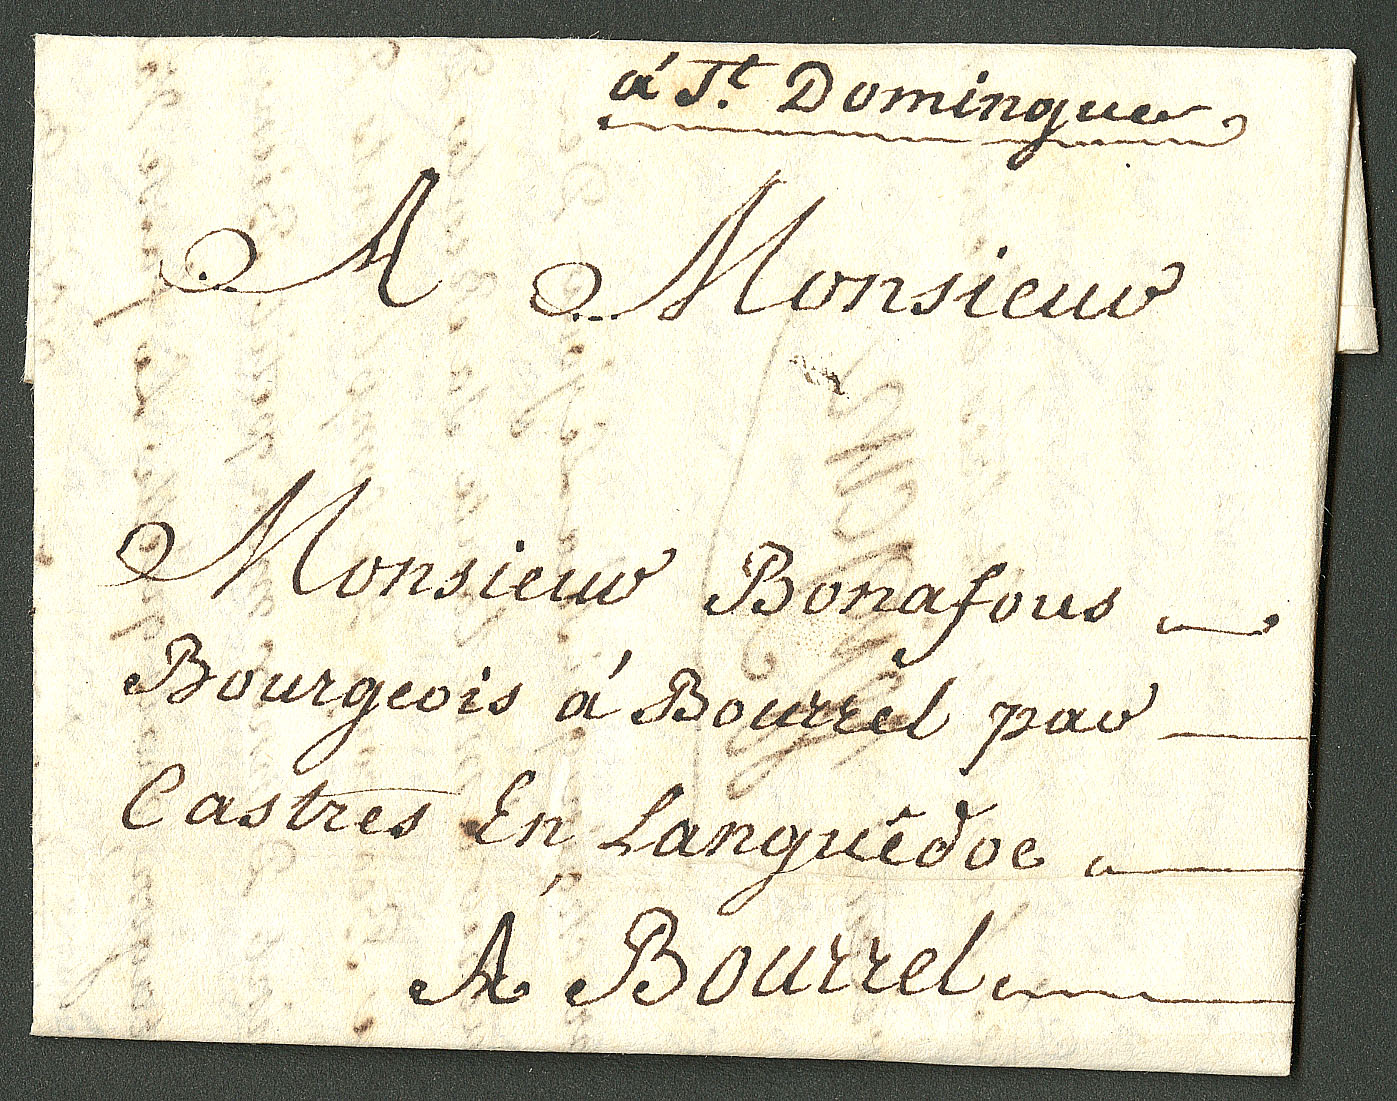 á St. Domingue
A Monsieur
Monsieur Bonafous
Bourgeois á Bourrel par
Castres En Languedoc
A Bourrel